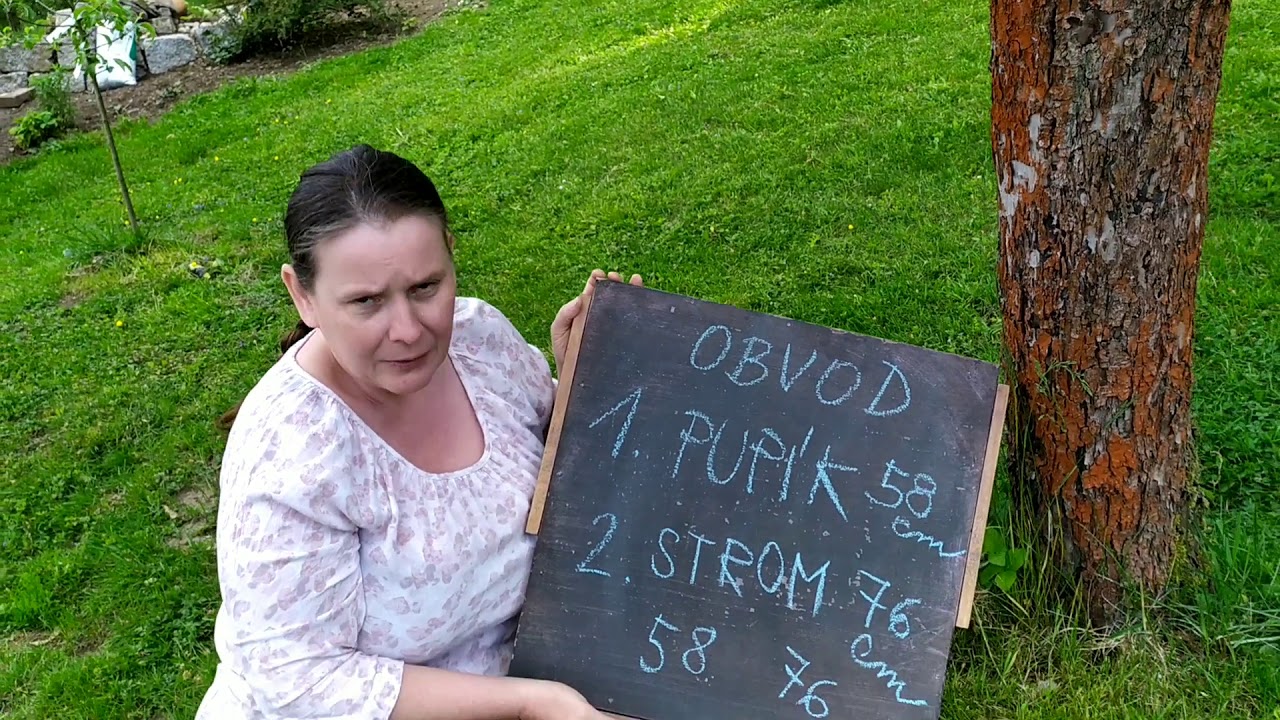 OBVOD
1. PUPÍK 58 cm
2. STROM 76 cm
58 76